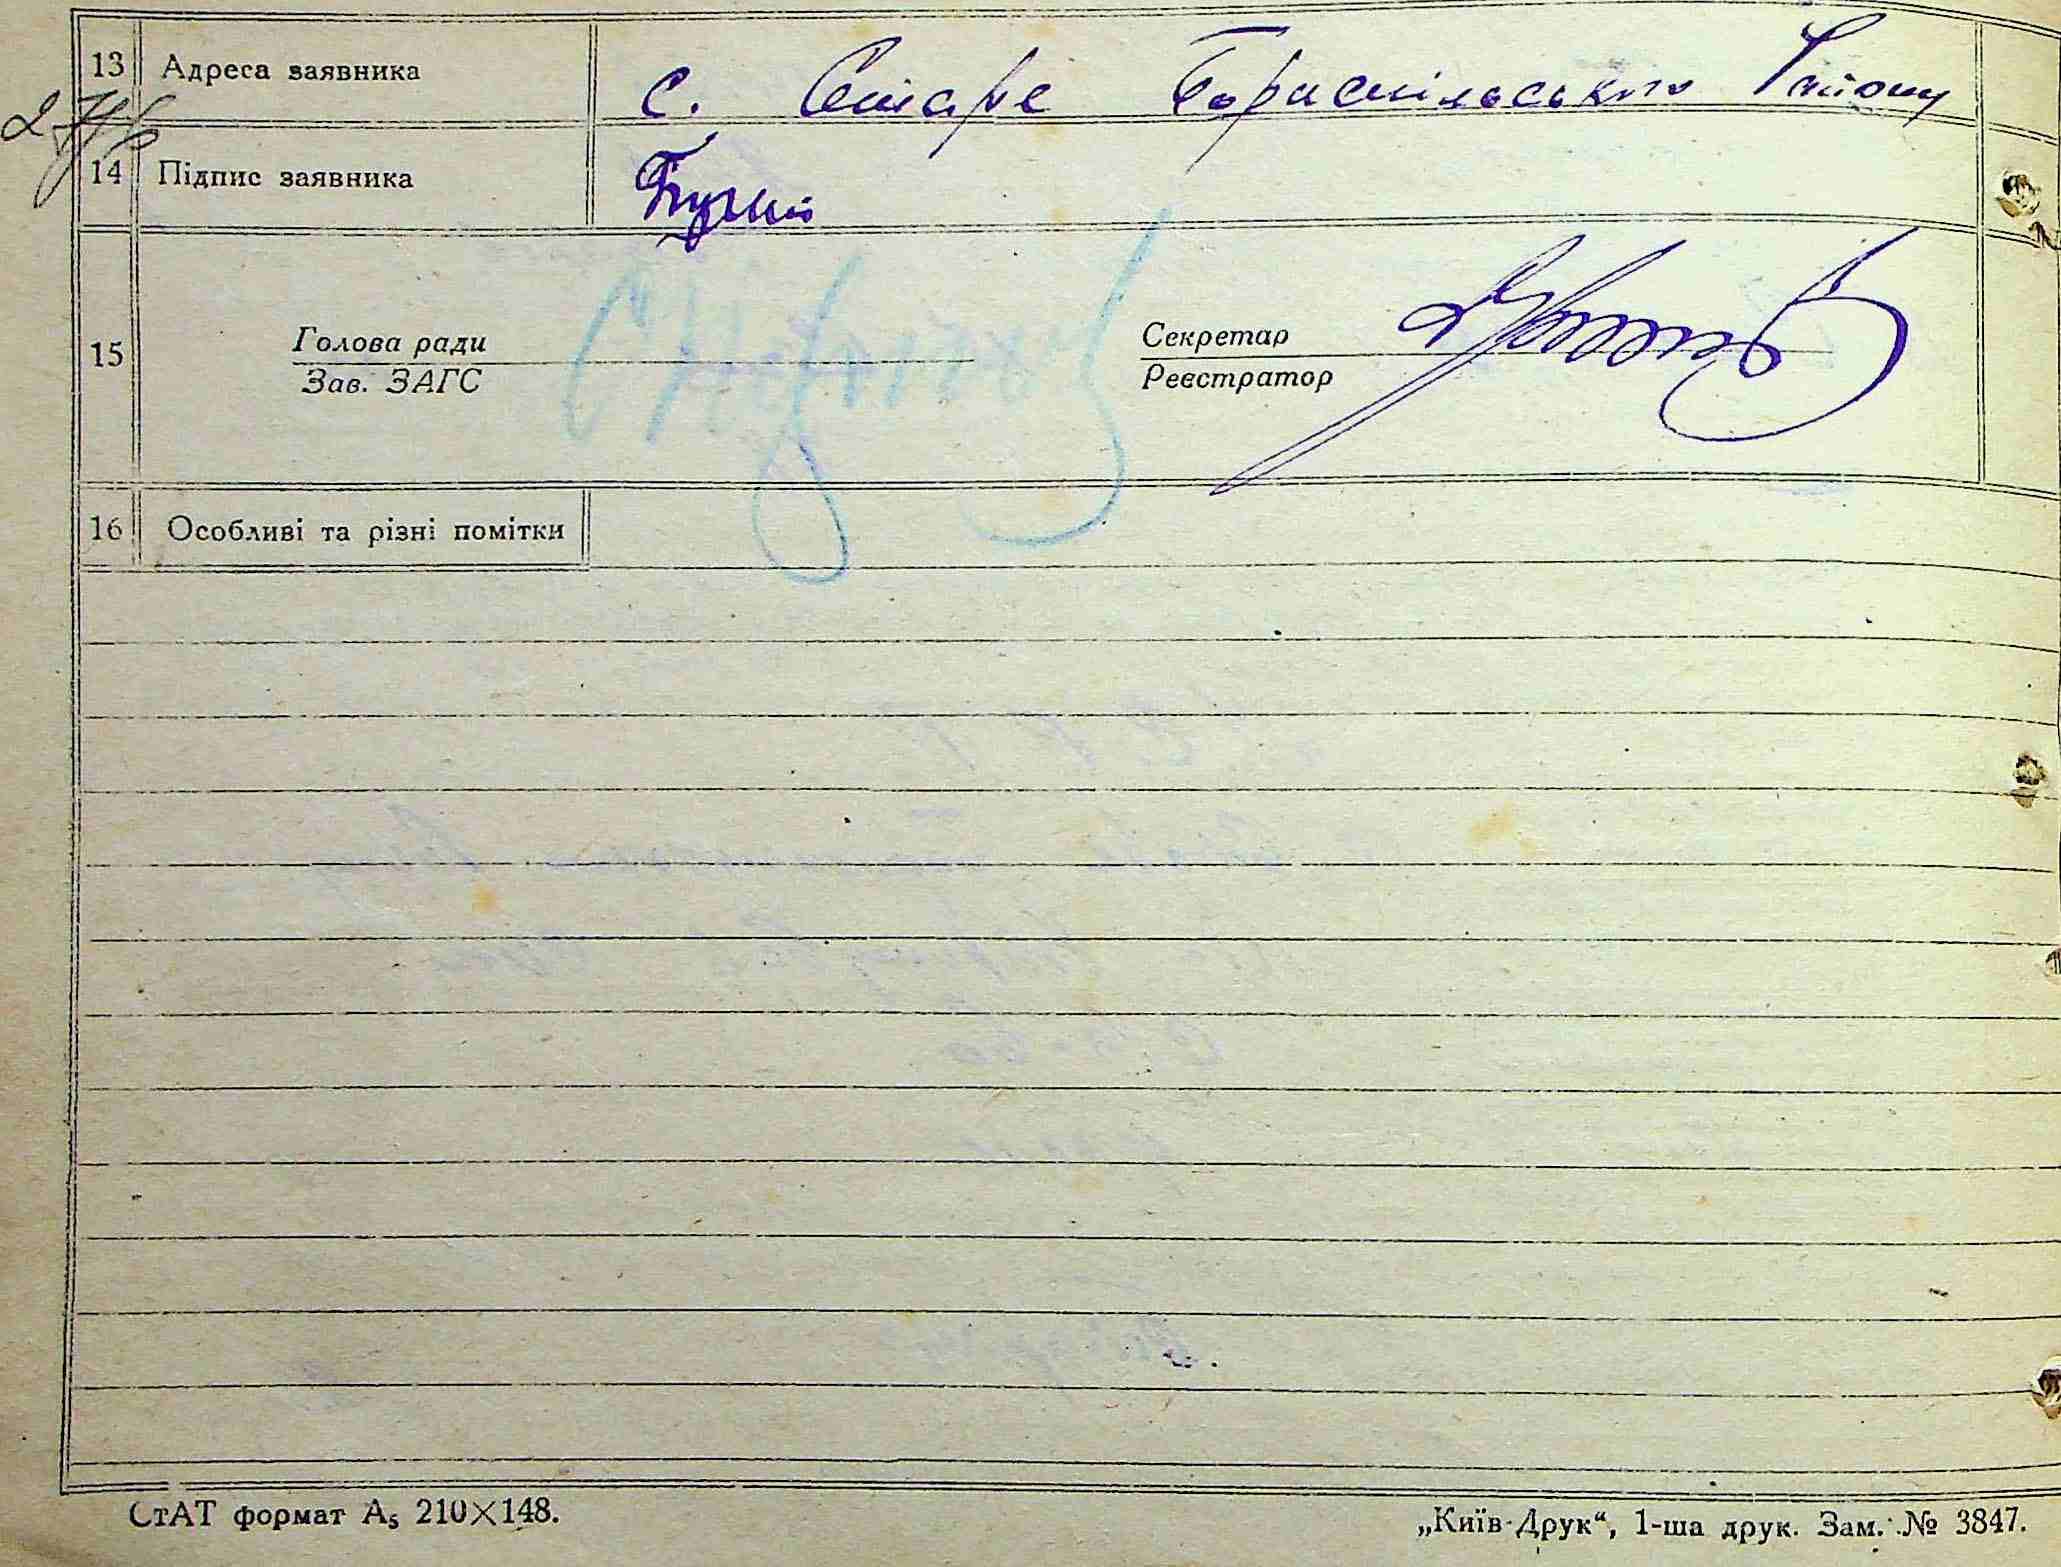 13 Адреса заявника с. Старе Бориспільського Району
14 Підпис заявника
15 Голова ради Секретар
Зав. ЗАГС Реєстратор
16 Особливі та різні помітки
СтАТ формат А₅ 210×148. „Київ-Друк“, 1-ша друк. Зам. № 3847.